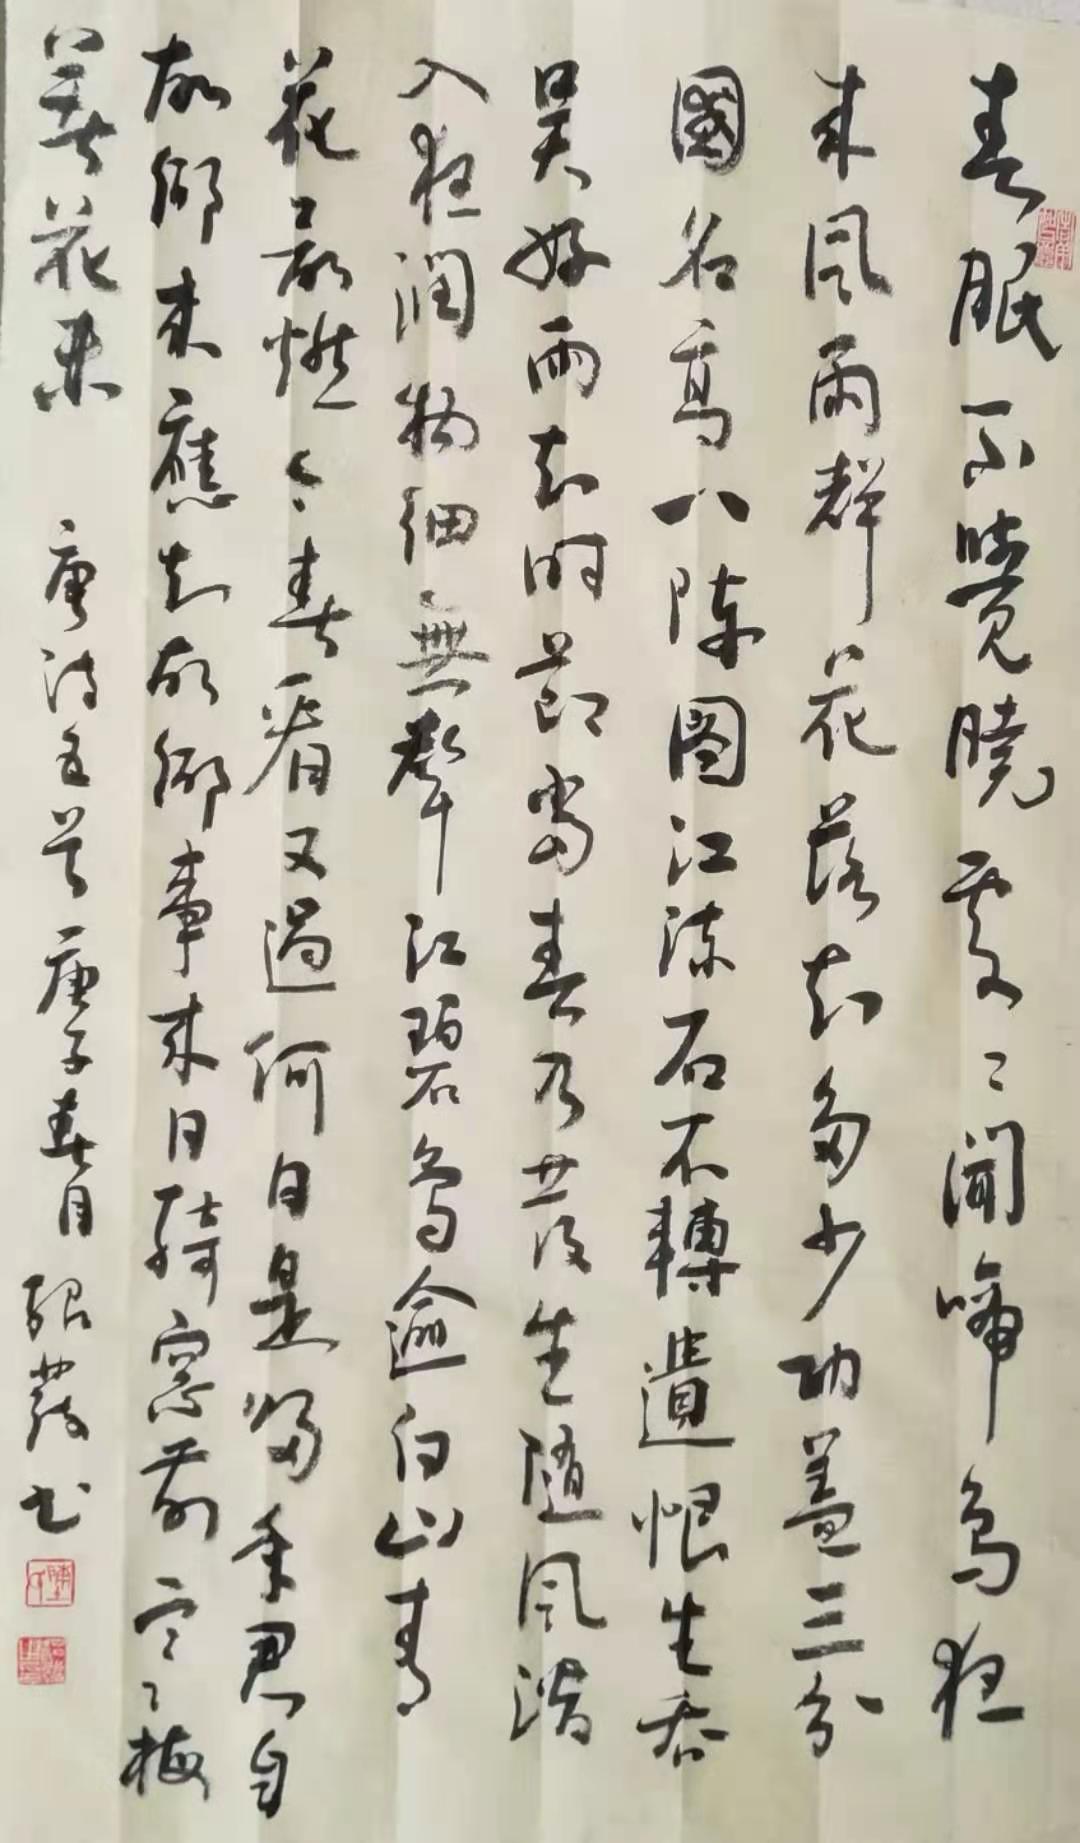 春眠不覺曉處々聞啼鳥夜
來風雨聲花落知多少功蓋三分
國名高八陣圖江流石不轉遺恨失吞
吳好雨知時節當春乃發生隨風潛
入夜潤物細無聲江碧鳥逾白山青
花欲燃今春看又過何日是歸年君自
故鄉來應知故鄉事來日綺窗前寒々梅
著花未 唐詩五首庚子春月 發書